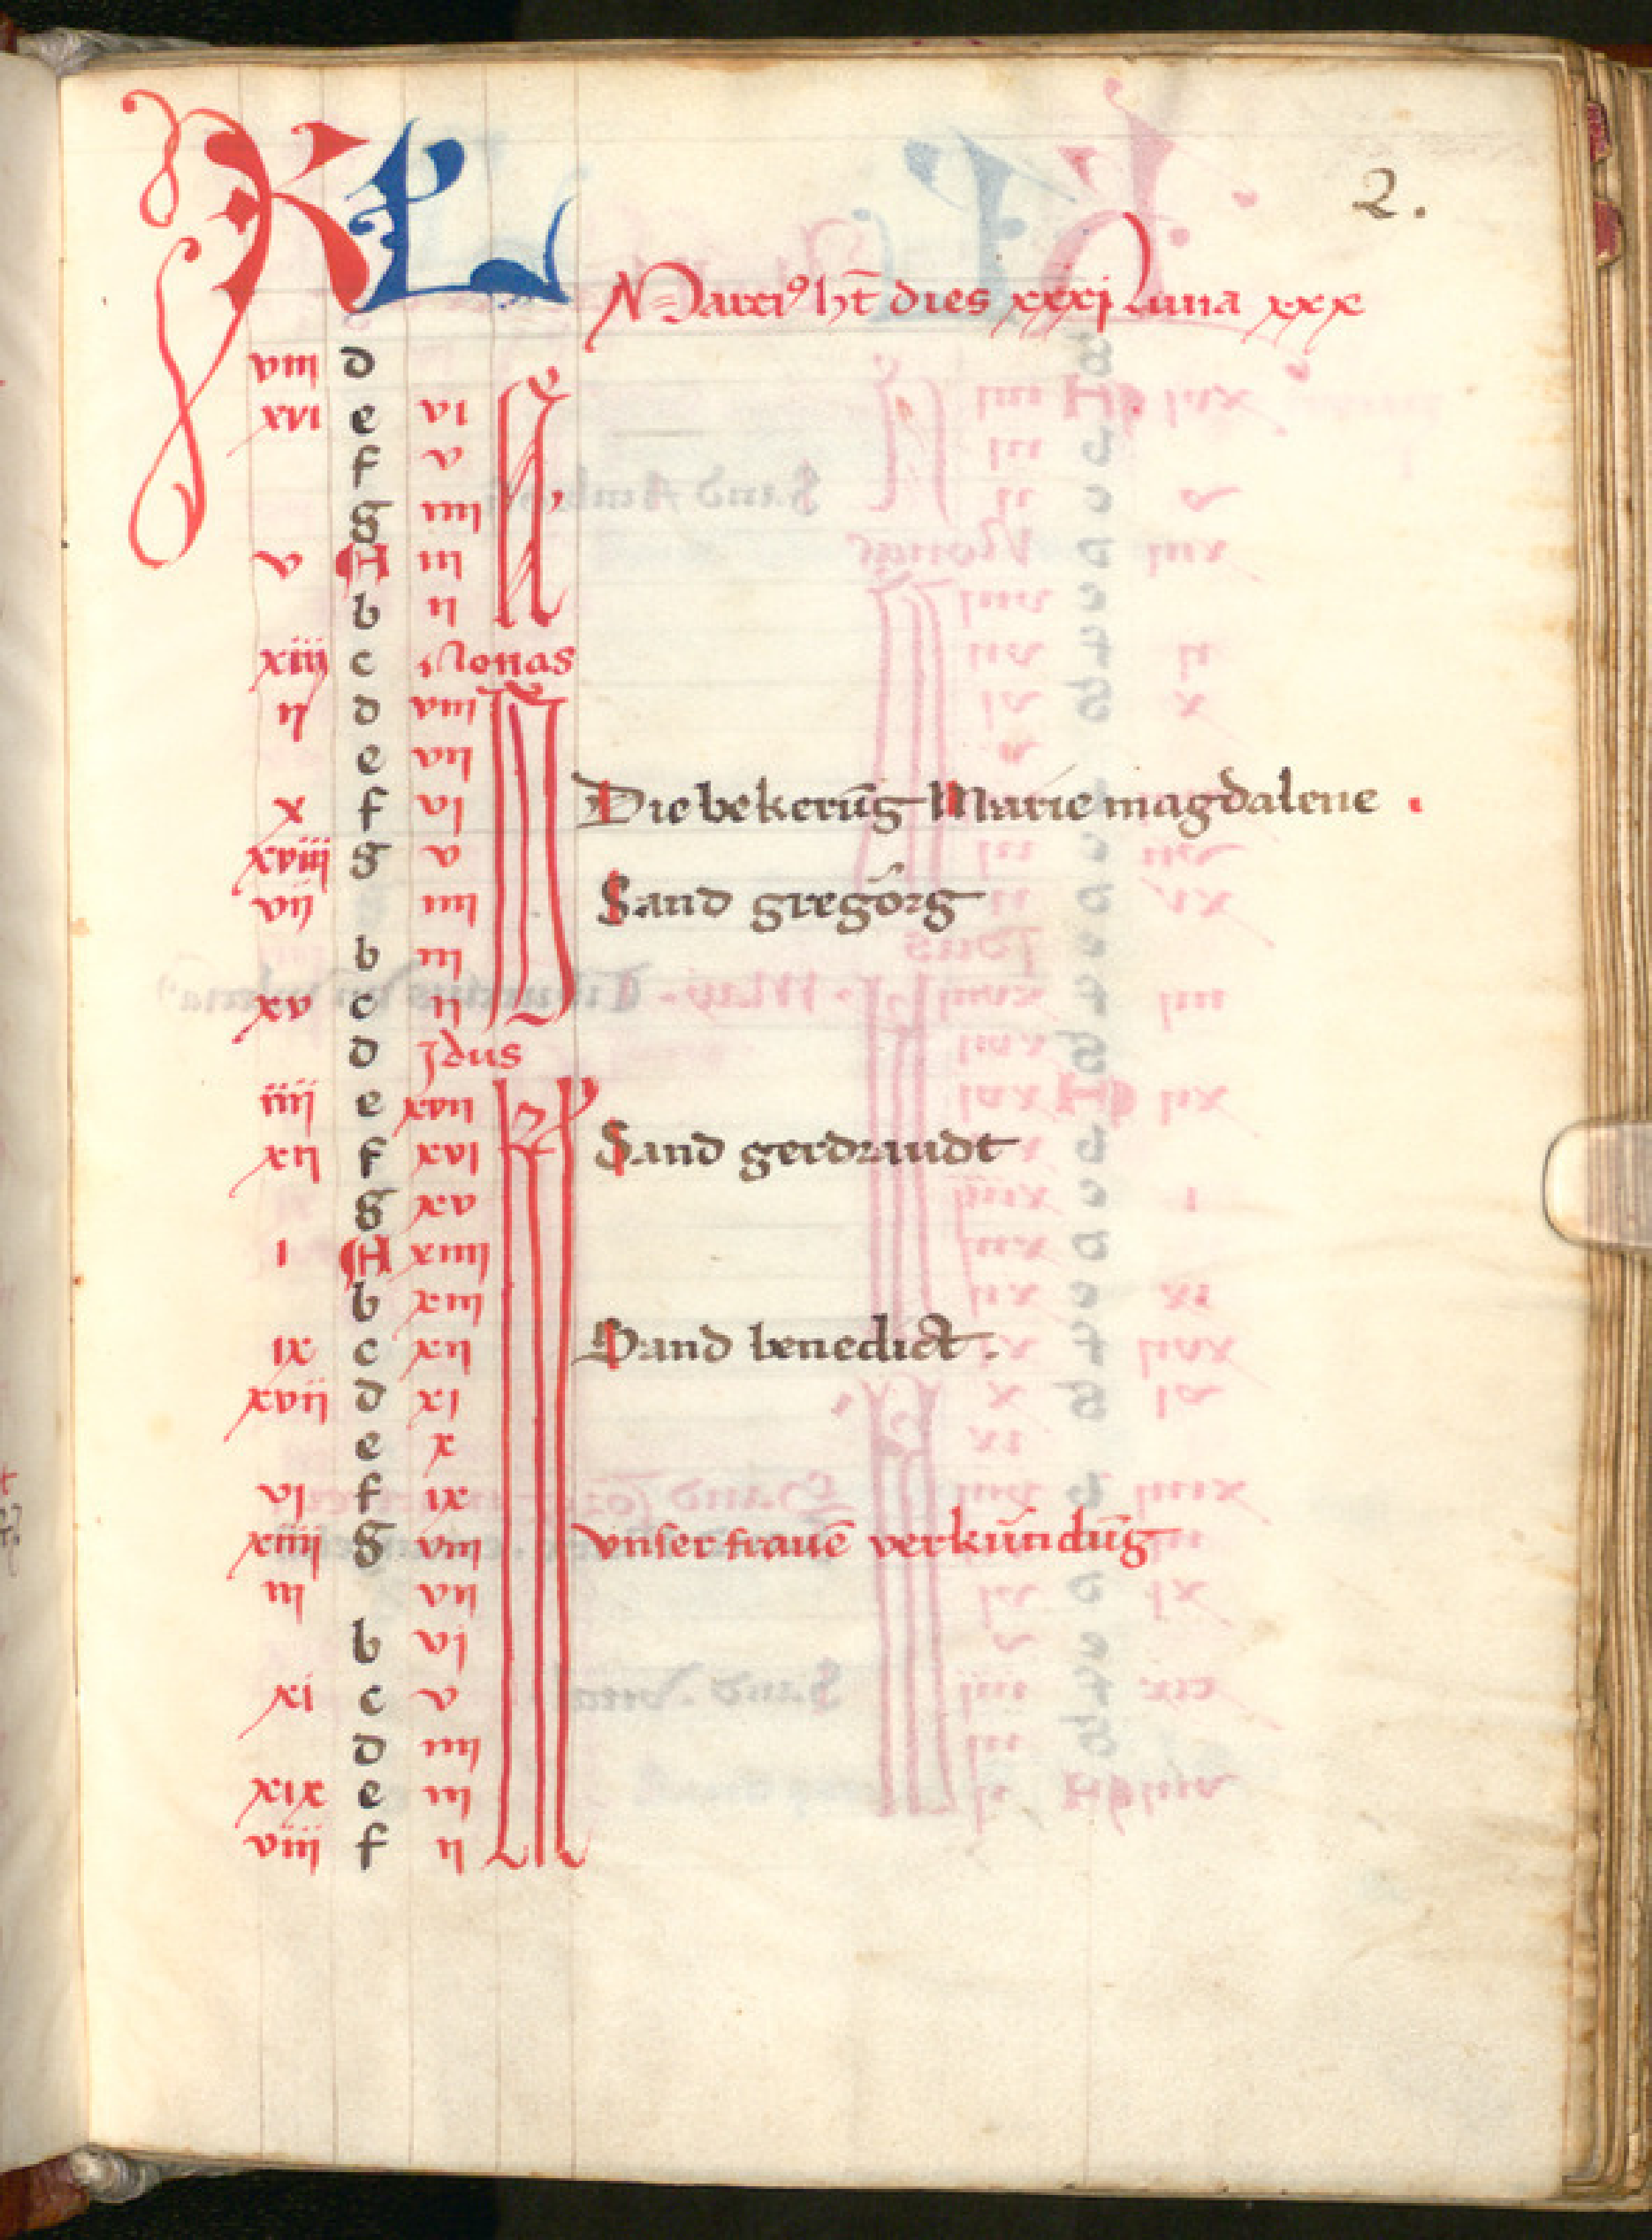 2.
KL
Marciꝰ ht̄ dies xxxi Luna xxx
viii d
xvi e vi
f v
g iiii
v A iii
b ii
xiij c Nonas
ii d viii
e vii
x f vi Die bekerūg Marie magdalene .
xviij g v
vij iiii Sand gregorg
b iii
xv c ii
d Jdus
iiij e xvii
xii f xvi Sand gerdraudt
g xv
i A xiiii
b xiii
ix c xii Sand benedict .
xvij d xi
e x
vi f ix
xiiij g viii vnser frauē verkūndūg
iii vii
b vi
xi c v
d iiii
xix e iii
viij f ii